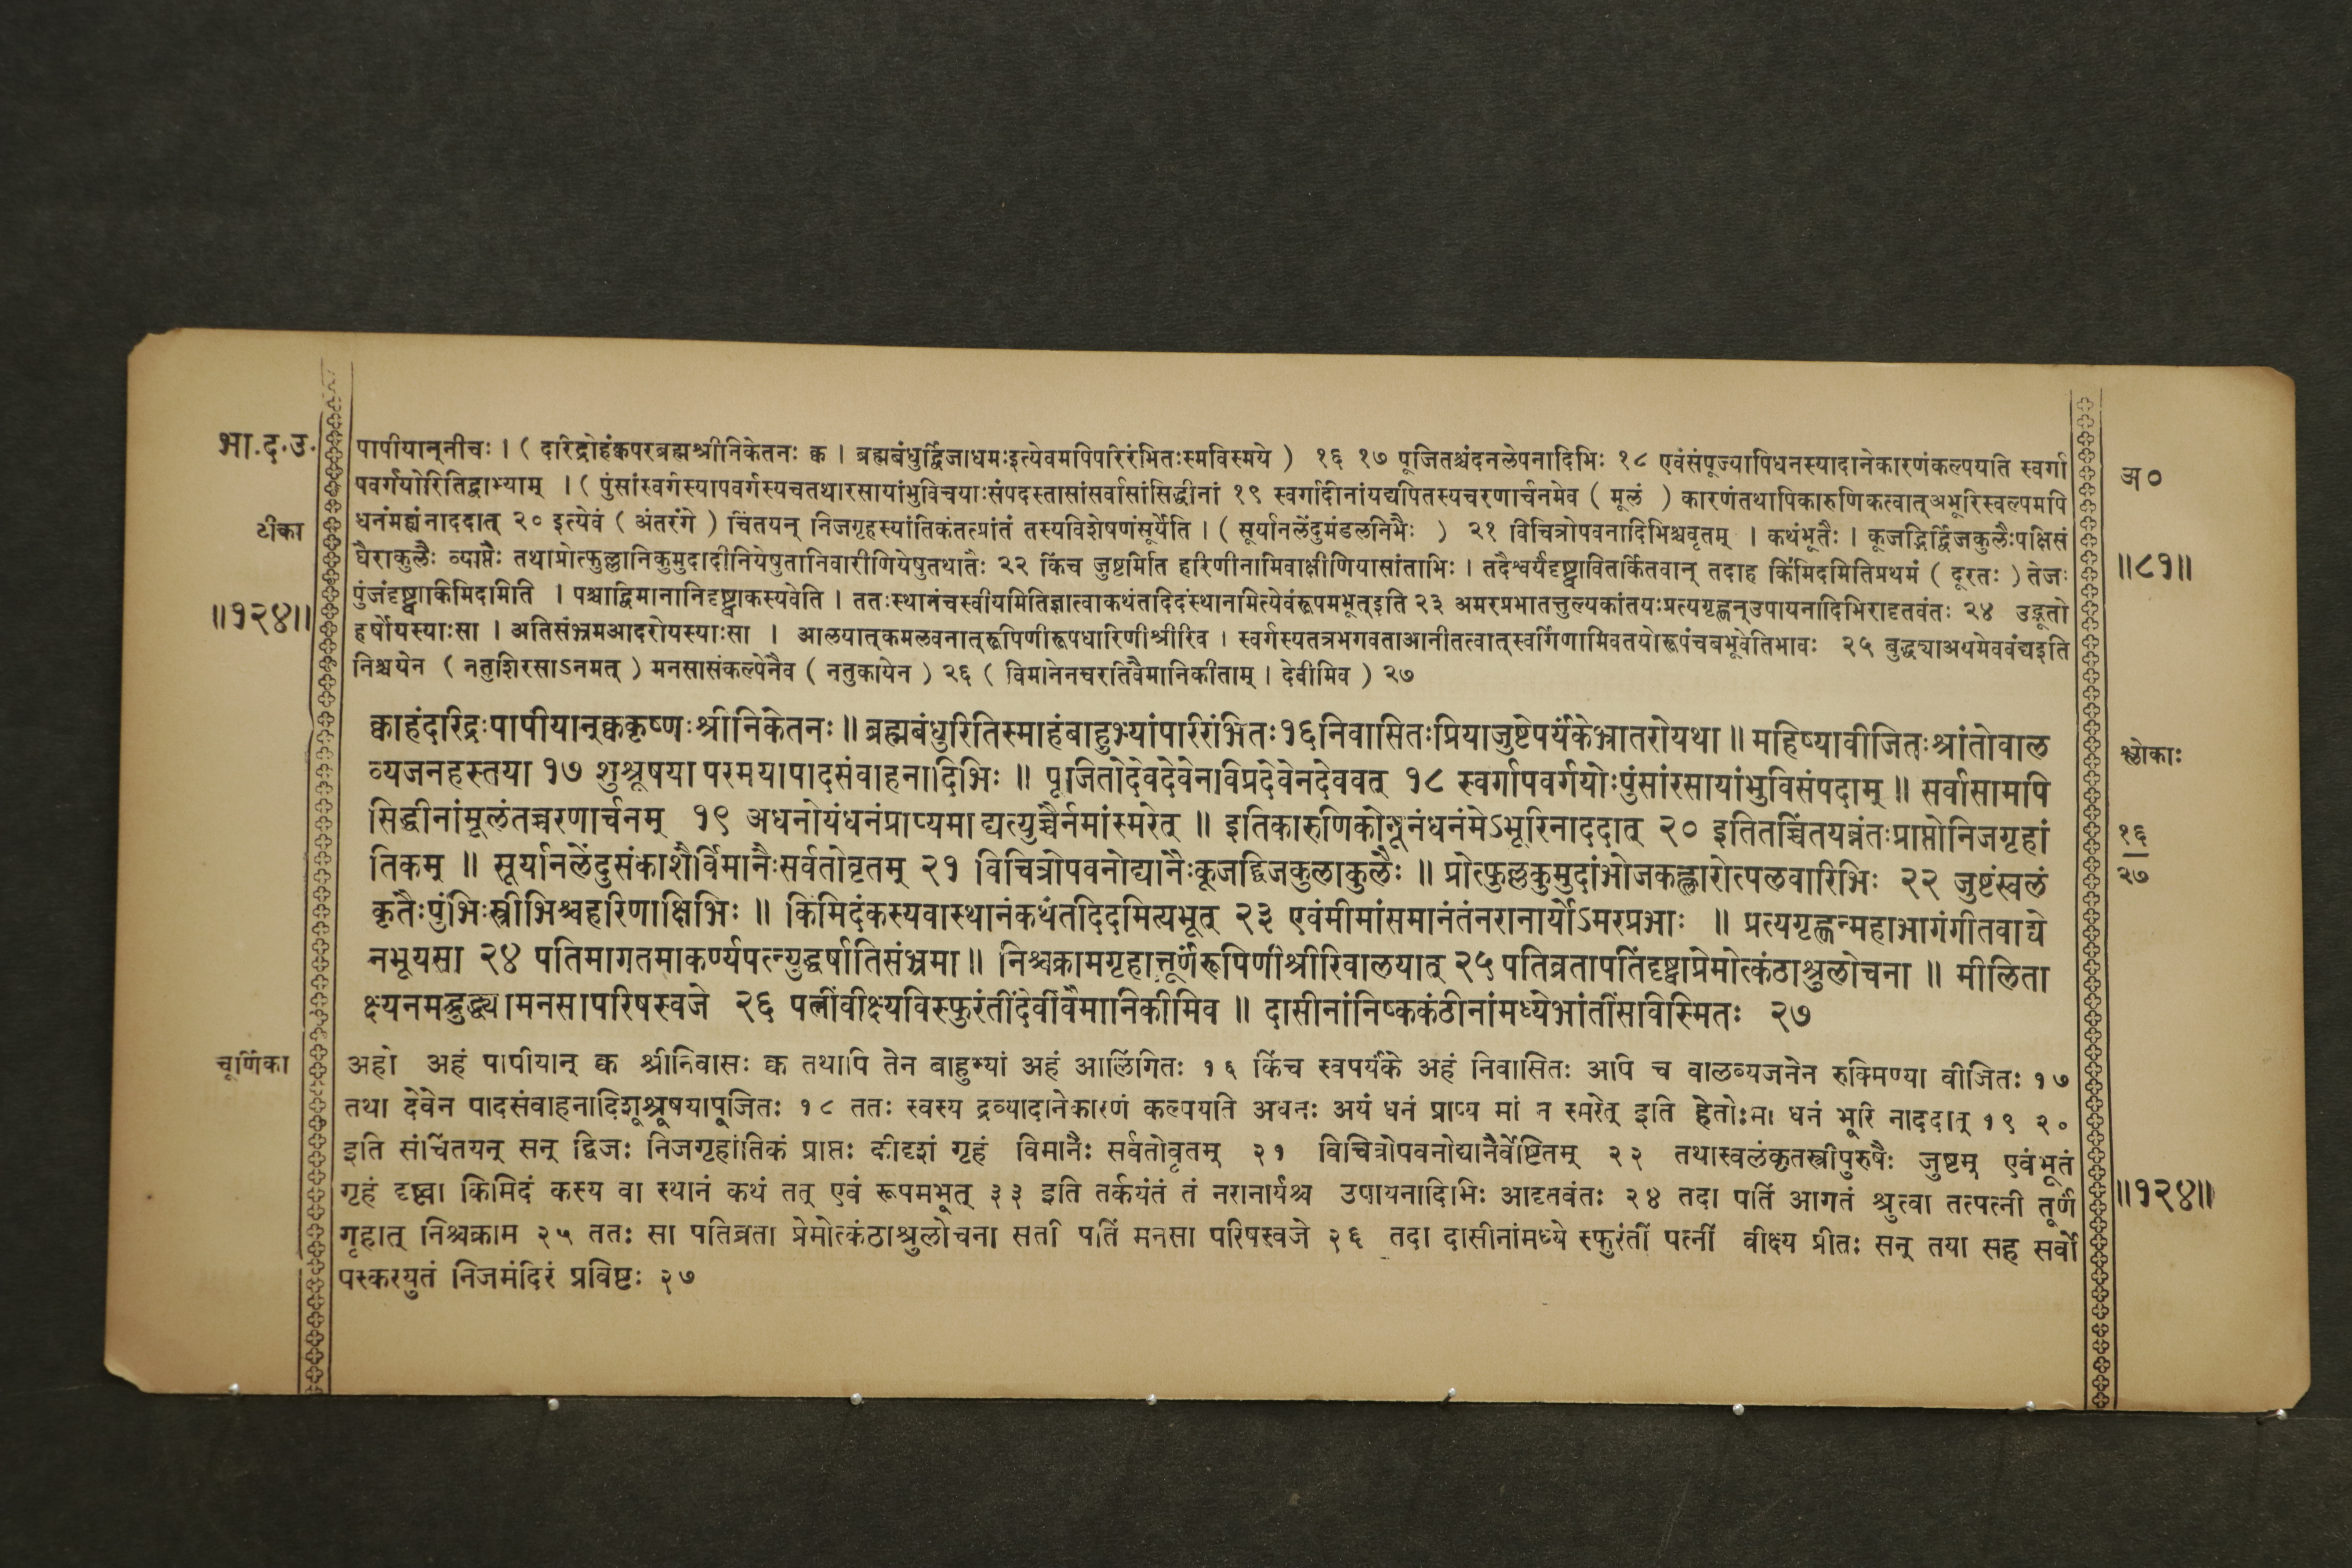 भा.द.उ.
टीका
॥१२४॥
पापीयान्नीचः । ( दारिद्रोहंक्कपरब्रह्मश्रीनिकेतनः क्क । ब्रह्मबंधुर्द्विजाधमःइत्येवमपिपरिरंभितःस्मविस्मये ) १६ १७ पूजितश्चंदनलेपनादिभिः १८ एवंसंपूज्यापिधनस्यादानेकारणंकल्पयति स्वर्गा
पवर्गयोरितिद्वाभ्याम् । ( पुंसांस्वर्गस्यापवर्गस्यचतथारसायांभुविचयाःसंपदस्तासांसर्वासांसिद्धीनां १९ स्वर्गादीनांयद्यपितस्यचरणार्चनमेव ( मूलं ) कारणंतथापिकारुणिकत्वात्अभूरिस्वल्पमपि
धनंमह्यंनाददात् २० इत्येवं ( अंतरंगे ) चिंतयन् निजगृहस्यांतिकंतत्प्रांतं तस्यविशेषणंसूर्येति । ( सूर्यानलेंदुमंडलनिभैः ) २१ विचित्रोपवनादिभिश्चवृतम् । कथंभूतैः । कूजद्भिर्द्विजकुलैःपक्षिसं
घैराकुलैः व्याप्तैः तथाप्रोत्फुल्लानिकुमुदादीनियेषुतानिवारीणियेषुतथातैः २२ किंच जुष्टमिति हरिणीनामिवाक्षीणियासांताभिः । तदैश्वर्यंदृष्ट्वावितर्कितवान् तदाह किमिदमितिप्रथमं ( दूरतः ) तेजः
पुंजंदृष्ट्वाकिमिदमिति । पश्चाद्विमानानिदृष्ट्वाकस्यवेति । ततःस्थानंचस्वीयमितिज्ञात्वाकथंतदिदंस्थानमित्येवंरूपमभूत्इति २३ अमरप्रभातत्तुल्यकांतयःप्रत्यगृह्णन्उपायनादिभिरादृतवंतः २४ उद्भूतो
हर्षोयस्याःसा । अतिसंभ्रमआदरोयस्याःसा । आलयात्कमलवनात्रूपिणीरूपधारिणीश्रीरिव । स्वर्गस्यतत्रभगवताआनीतत्वात्स्वर्गिणामिवतयोरूपंचबभूवेतिभावः २५ बुद्ध्याअयमेववंद्यइति
निश्चयेन ( नतुशिरसाऽनमत् ) मनसासंकल्पेनैव ( नतुकायेन ) २६ ( विमानेनचरतिवैमानिकीताम् । देवीमिव ) २७
क्काहंदारिद्रःपापीयान्क्ककृष्णःश्रीनिकेतनः ॥ ब्रह्मबंधुरितिस्माहंबाहुभ्यांपरिरंभितः१६निवासितःप्रियाजुष्टेपर्यंकेभ्रातरोयथा ॥ महिष्यावीजितःश्रांतोवाल
व्यजनहस्तया १७ शुश्रूषया परमयापादसंवाहनादिभिः ॥ पूजितोदेवदेवेनविप्रदेवेनदेववत् १८ स्वर्गापवर्गयोःपुंसांरसायांभुविसंपदाम् ॥ सर्वासामपि
सिद्धीनांमूलंतच्चरणार्चनम् १९ अधनोयंधनंप्राप्यमाद्यत्युच्चैर्नमांस्मरेत् ॥ इतिकारुणिकोनूनंधनंमेऽभूरिनाददात् २० इतितच्चिंतयन्नंतःप्राप्तोनिजगृहां
तिकम् ॥ सूर्यानलेंदुसंकाशैर्विमानैःसर्वतोवृतम् २१ विचित्रोपवनोद्यानैःकूजद्विजकुलाकुलैः ॥ प्रोत्फुल्लकुमुदांभोजकह्लारोत्पलवारिभिः २२ जुष्टंस्वलं
कृतैःपुंभिःस्त्रीभिश्चहरिणाक्षिभिः ॥ किमिदंकस्यवास्थानंकथंतदिदमित्यभूत् २३ एवंमीमांसमानंतंनरानार्योऽमरप्रभाः ॥ प्रत्यगृह्णन्महाभागंगीतवाद्ये
नभूयसा २४ पतिमागतमाकर्ण्यपत्न्युद्धर्षातिसंभ्रमा ॥ निश्चक्रामगृहात्तूर्णंरूपिणीश्रीरिवालयात् २५ पतिव्रतापतिंदृष्ट्वाप्रेमोत्कंठाश्रुलोचना ॥ मीलिता
क्ष्यनमद्बुद्ध्यामनसापरिषस्वजे २६ पत्नींवीक्ष्यविस्फुरंतींदेवींवैमानिकीमिव ॥ दासीनांनिष्ककंठीनांमध्येभांतींसविस्मितः २७
चूर्णिका
अहो अहं पापीयान् क्क श्रीनिवासः क्क तथापि तेन बाहुभ्यां अहं आलिंगितः १६ किंच स्वपर्यंके अहं निवासितः अपि च वालव्यजनेन रुक्मिण्या वीजितः १७
तथा देवेन पादसंवाहनादिशुश्रूषयापूजितः १८ ततः स्वस्य द्रव्यादानेकारणं कल्पयति अधनः अयं धनं प्राप्य मां न स्मरेत् इति हेतोःमा धनं भूरि नाददात् १९ २०
इति संचिंतयन् सन् द्विजः निजगृहांतिकं प्राप्तः कीदृशं गृहं विमानैः सर्वतोवृतम् २१ विचित्रोपवनोद्यानैर्वेष्टितम् २२ तथास्वलंकृतस्त्रीपुरुषैः जुष्टम् एवंभूतं
गृहं दृष्ट्वा किमिदं कस्य वा स्थानं कथं तत् एवं रूपमभूत् ३३ इति तर्कयंतं तं नरानार्यश्च उपायनादिभिः आदृतवंतः २४ तदा पतिं आगतं श्रुत्वा तत्पत्नी तूर्णं
गृहात् निश्चक्राम २५ ततः सा पतिव्रता प्रेमोत्कंठाश्रुलोचना सती पतिं मनसा परिषस्वजे २६ तदा दासीनांमध्ये स्फुरंतीं पत्नीं वीक्ष्य प्रीतः सन् तया सह सर्वो
पस्करयुतं निजमंदिरं प्रविष्टः २७
अ०
॥८१॥
श्लोकाः
१६
२७
॥१२४॥